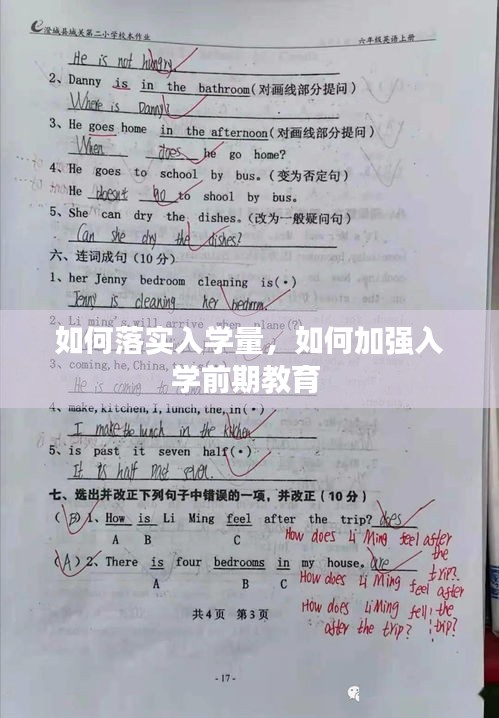 澄城县城关第二小学校本作业 六年级英语上册
He is not hungry
2、Danny is in the bathroom(对画线部分提问)
Where is Danny?
3、He goes home in the afternoon(对画线部分提问)
When does he go home?
4、He goes to school by bus.(变为否定句)
He doesn't go to shool by bus.
5、She can dry the dishes.(改为一般疑问句)
Can she dry the dishes?
六、连词成句(10分)
1、her Jenny bedroom cleaning is(•)
Jenny is cleaning her bedroom.
2、Li ming's,will arrive,when,plane(?)
如何落实入学量，如何加强入
学前期教育
3、coming,he,China,
He is coming
4、make,kitchen,I,lunch,the,in(•)
I make the lunch in the kitchen
5、is past it seven half(•)
It is half past seven.
七、选出并改正下列句子中错误的一项，并改正(10分)
(B)1、How is Li Ming feel after the trip? does
A B C
How does Li Ming feel after the trip?
(A)2、There is four bedrooms in my house. are
A B C
How does Li Ming feel after the trip?
How does Li Ming fell after the trip?
共4页 第3页
-17-